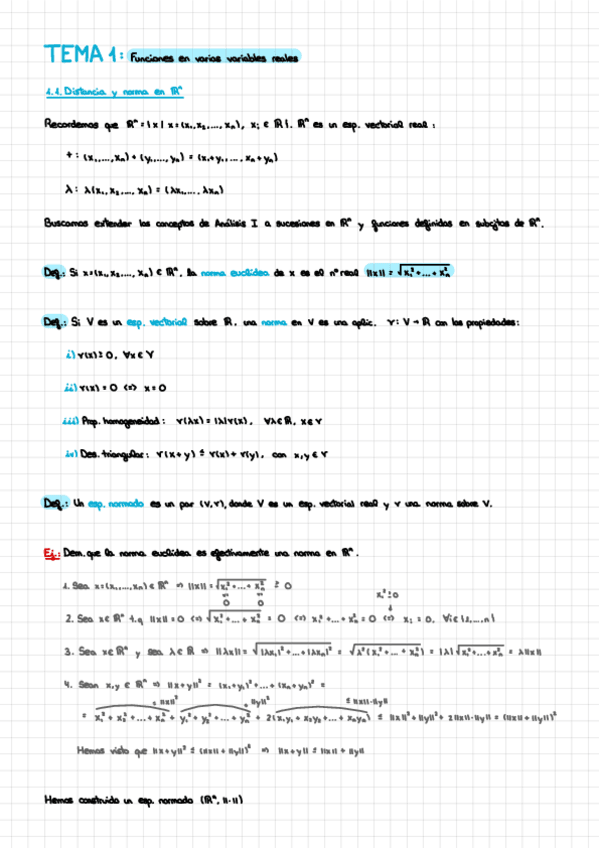 TEMA 1: Funciones en varias variables reales
1.1. Distancia y norma en ℝⁿ
Recordemos que ℝⁿ = {x | x = (x₁, x₂, ..., xₙ), xᵢ ∈ ℝ}. ℝⁿ es un esp. vectorial real:
+: (x₁, ..., xₙ) + (y₁, ..., yₙ) = (x₁+y₁, ..., xₙ+yₙ)
λ: λ(x₁, x₂, ..., xₙ) = (λx₁, ..., λxₙ)
Buscamos extender los conceptos de Análisis I a sucesiones en ℝⁿ y funciones definidas en subcjtos de ℝⁿ.
Def.: Si x = (x₁, x₂, ..., xₙ) ∈ ℝⁿ, la norma euclídea de x es el nº real ||x|| = √(x₁² + ... + xₙ²)
Def.: Si V es un esp. vectorial sobre ℝ, una norma en V es una aplic. r: V → ℝ con las propiedades:
i) r(x) ≥ 0, ∀x ∈ V
ii) r(x) = 0 <=> x = 0
iii) Prop. homogeneidad: r(λx) = |λ| r(x), ∀λ ∈ ℝ, x ∈ V
iv) Des. triangular: r(x+y) ≤ r(x) + r(y), con x, y ∈ V
Def.: Un esp. normado es un par (V, r), donde V es un esp. vectorial real y r una norma sobre V.
Ej.: Dem. que la norma euclídea es efectivamente una norma en ℝⁿ.
1. Sea x = (x₁, ..., xₙ) ∈ ℝⁿ => ||x|| = √(x₁² + ... + xₙ²) ≥ 0
0 0
xᵢ² ≥ 0
2. Sea x ∈ ℝⁿ t.q ||x|| = 0 <=> √(x₁² + ... + xₙ²) = 0 <=> x₁² + ... + xₙ² = 0 <=> xᵢ = 0, ∀i ∈ {1, ..., n}
3. Sea x ∈ ℝⁿ y sea λ ∈ ℝ => ||λx|| = √((λx₁)² + ... + (λxₙ)²) = √(λ²(x₁² + ... + xₙ²)) = |λ| √(x₁² + ... + xₙ²) = λ||x||
4. Sean x, y ∈ ℝⁿ => ||x+y||² = (x₁+y₁)² + ... + (xₙ+yₙ)² =
= ||x||² = ||y||² ≤ ||x||·||y||
= x₁² + x₂² + ... + xₙ² + y₁² + y₂² + ... + yₙ² + 2(x₁y₁ + x₂y₂ + ... + xₙyₙ) ≤ ||x||² + ||y||² + 2||x||·||y|| = (||x|| + ||y||)²
Hemos visto que ||x+y||² ≤ (||x|| + ||y||)² => ||x+y|| ≤ ||x|| + ||y||
Hemos construido un esp. normado (ℝⁿ, ||·||)